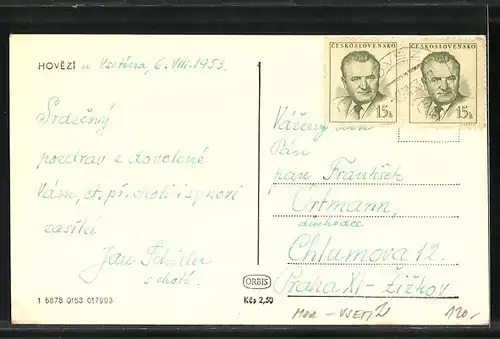 HOVĚZÍ u Vsetína, 6. VIII. 1953.
Srdečný
pozdrav z dovolené
Vám, ct. pí. choti i synovi
zasílá
Jan Schiller
s chotí.
1 5878 0153 017993
ČESKOSLOVENSKO
15h
ČESKOSLOVENSKO
15h
Vážený
Pán
pan František
Ortmann,
důchodce
Chlumova 12.
Praha XI - Žižkov.
ORBIS
Kčs 2,50
120,-